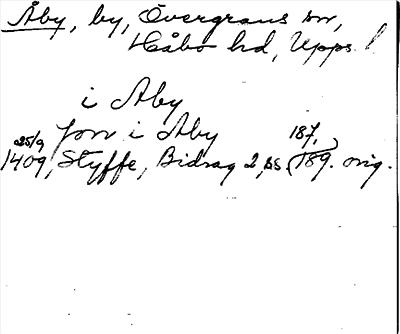 Åby, by, Övergrans sn,
Håbo hd, Upps. l
i Aby
Jon i Aby
25/9 1409, Styffe, Bidrag 2, ss. 187, 189. orig.